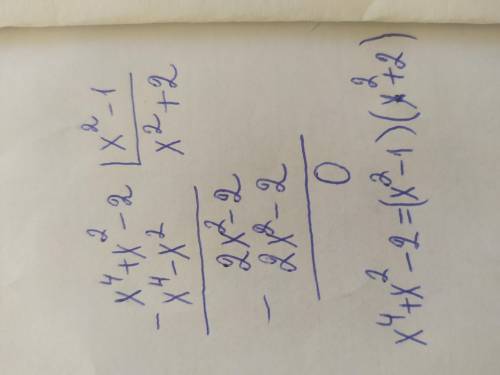 x⁴+x²-2 | x²-1
- x⁴-x² x²+2
2x²-2
- 2x²-2
0
x⁴+x²-2=(x²-1)(x²+2)